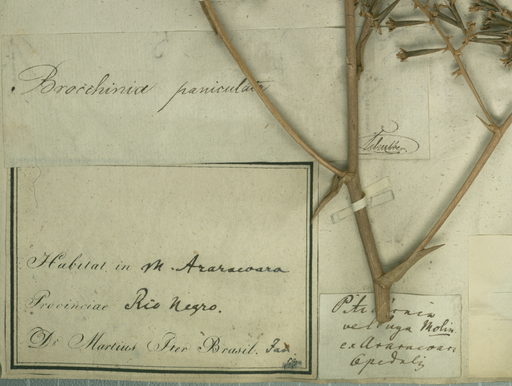 Brocchinia paniculata
Schultes
Habitat in M. Araracoara
Provinciae Rio Negro.
Dr Martius Iter Brasil.
Molin
ex Araracoara